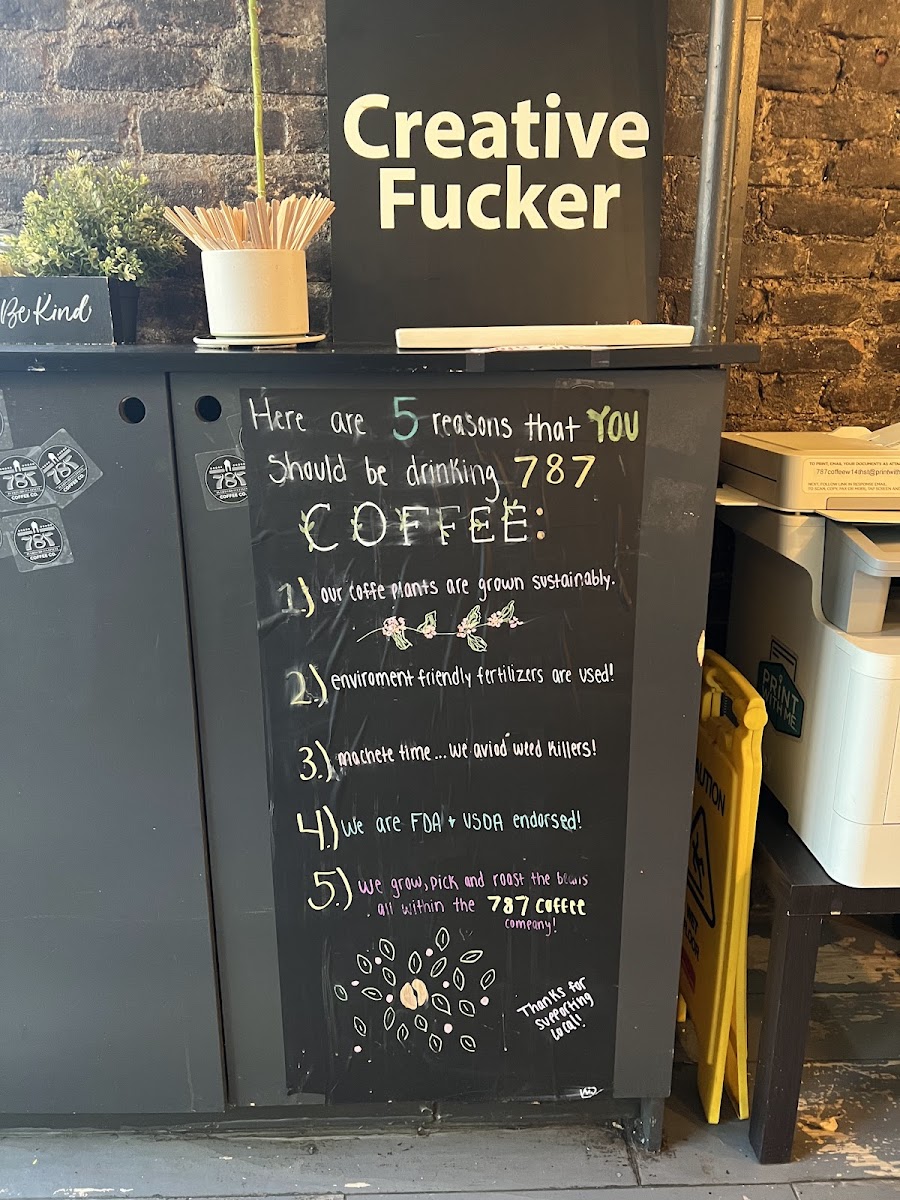 Creative
Fucker
Be Kind
Here are 5 reasons that YOU
should be drinking 787
COFFEE:
1.) our coffe plants are grown sustainably.
2.) enviroment friendly fertilizers are used!
3.) machete time... we aviod weed killers!
4.) We are FDA + USDA endorsed!
5.) we grow, pick and roast the beans
all within the 787 coffee
company!
Thanks for
supporting
local!
787
COFFEE CO.
787
COFFEE CO.
787
COFFEE CO.
787
COFFEE CO.
TO PRINT, EMAIL YOUR DOCUMENTS AS ATTA
787coffeew14thst@printwith
PRINT
WITH ME
CAUTION